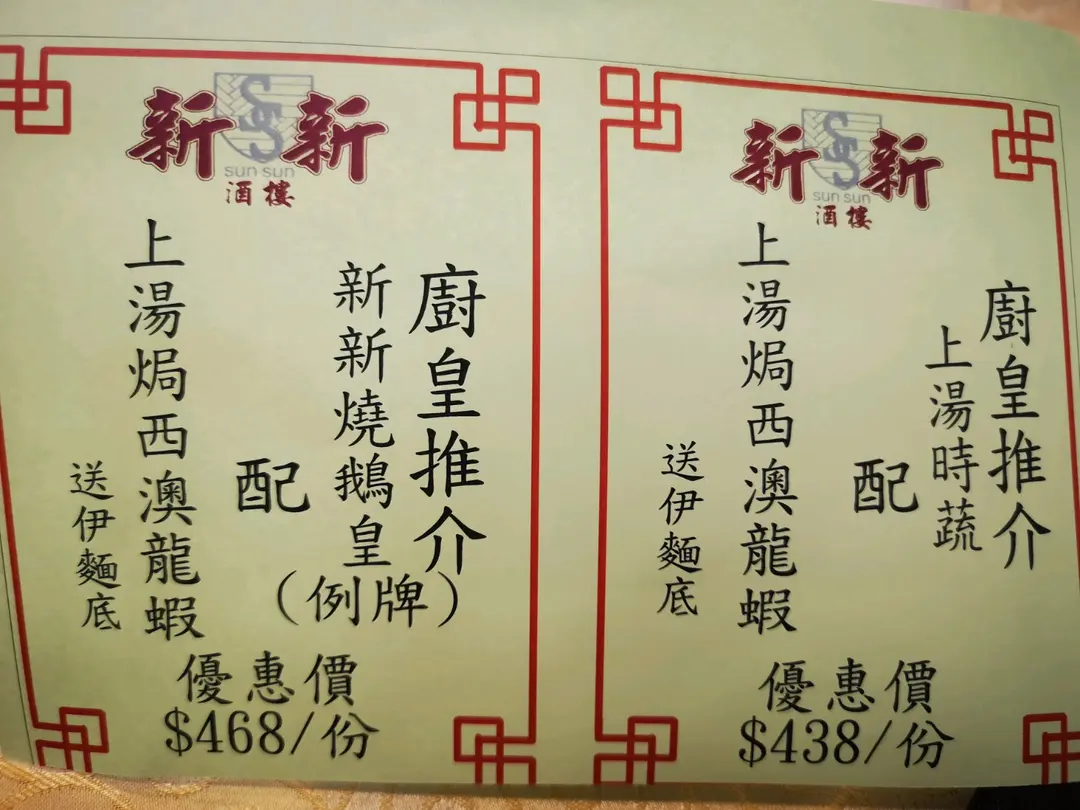 新新
SS
sun sun
酒樓
廚皇推介
新新燒鵝皇
(例牌)
配
上湯焗西澳龍蝦
送伊麵底
優惠價
$468/份
新新
SS
sun sun
酒樓
廚皇推介
上湯時蔬
配
上湯焗西澳龍蝦
送伊麵底
優惠價
$438/份